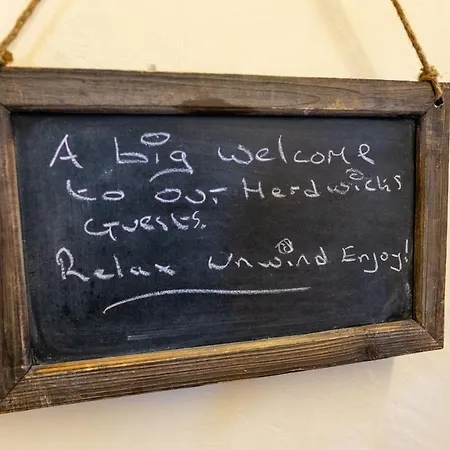 A big welcome
to our Herdwicks
Guests.
Relax unwind Enjoy!